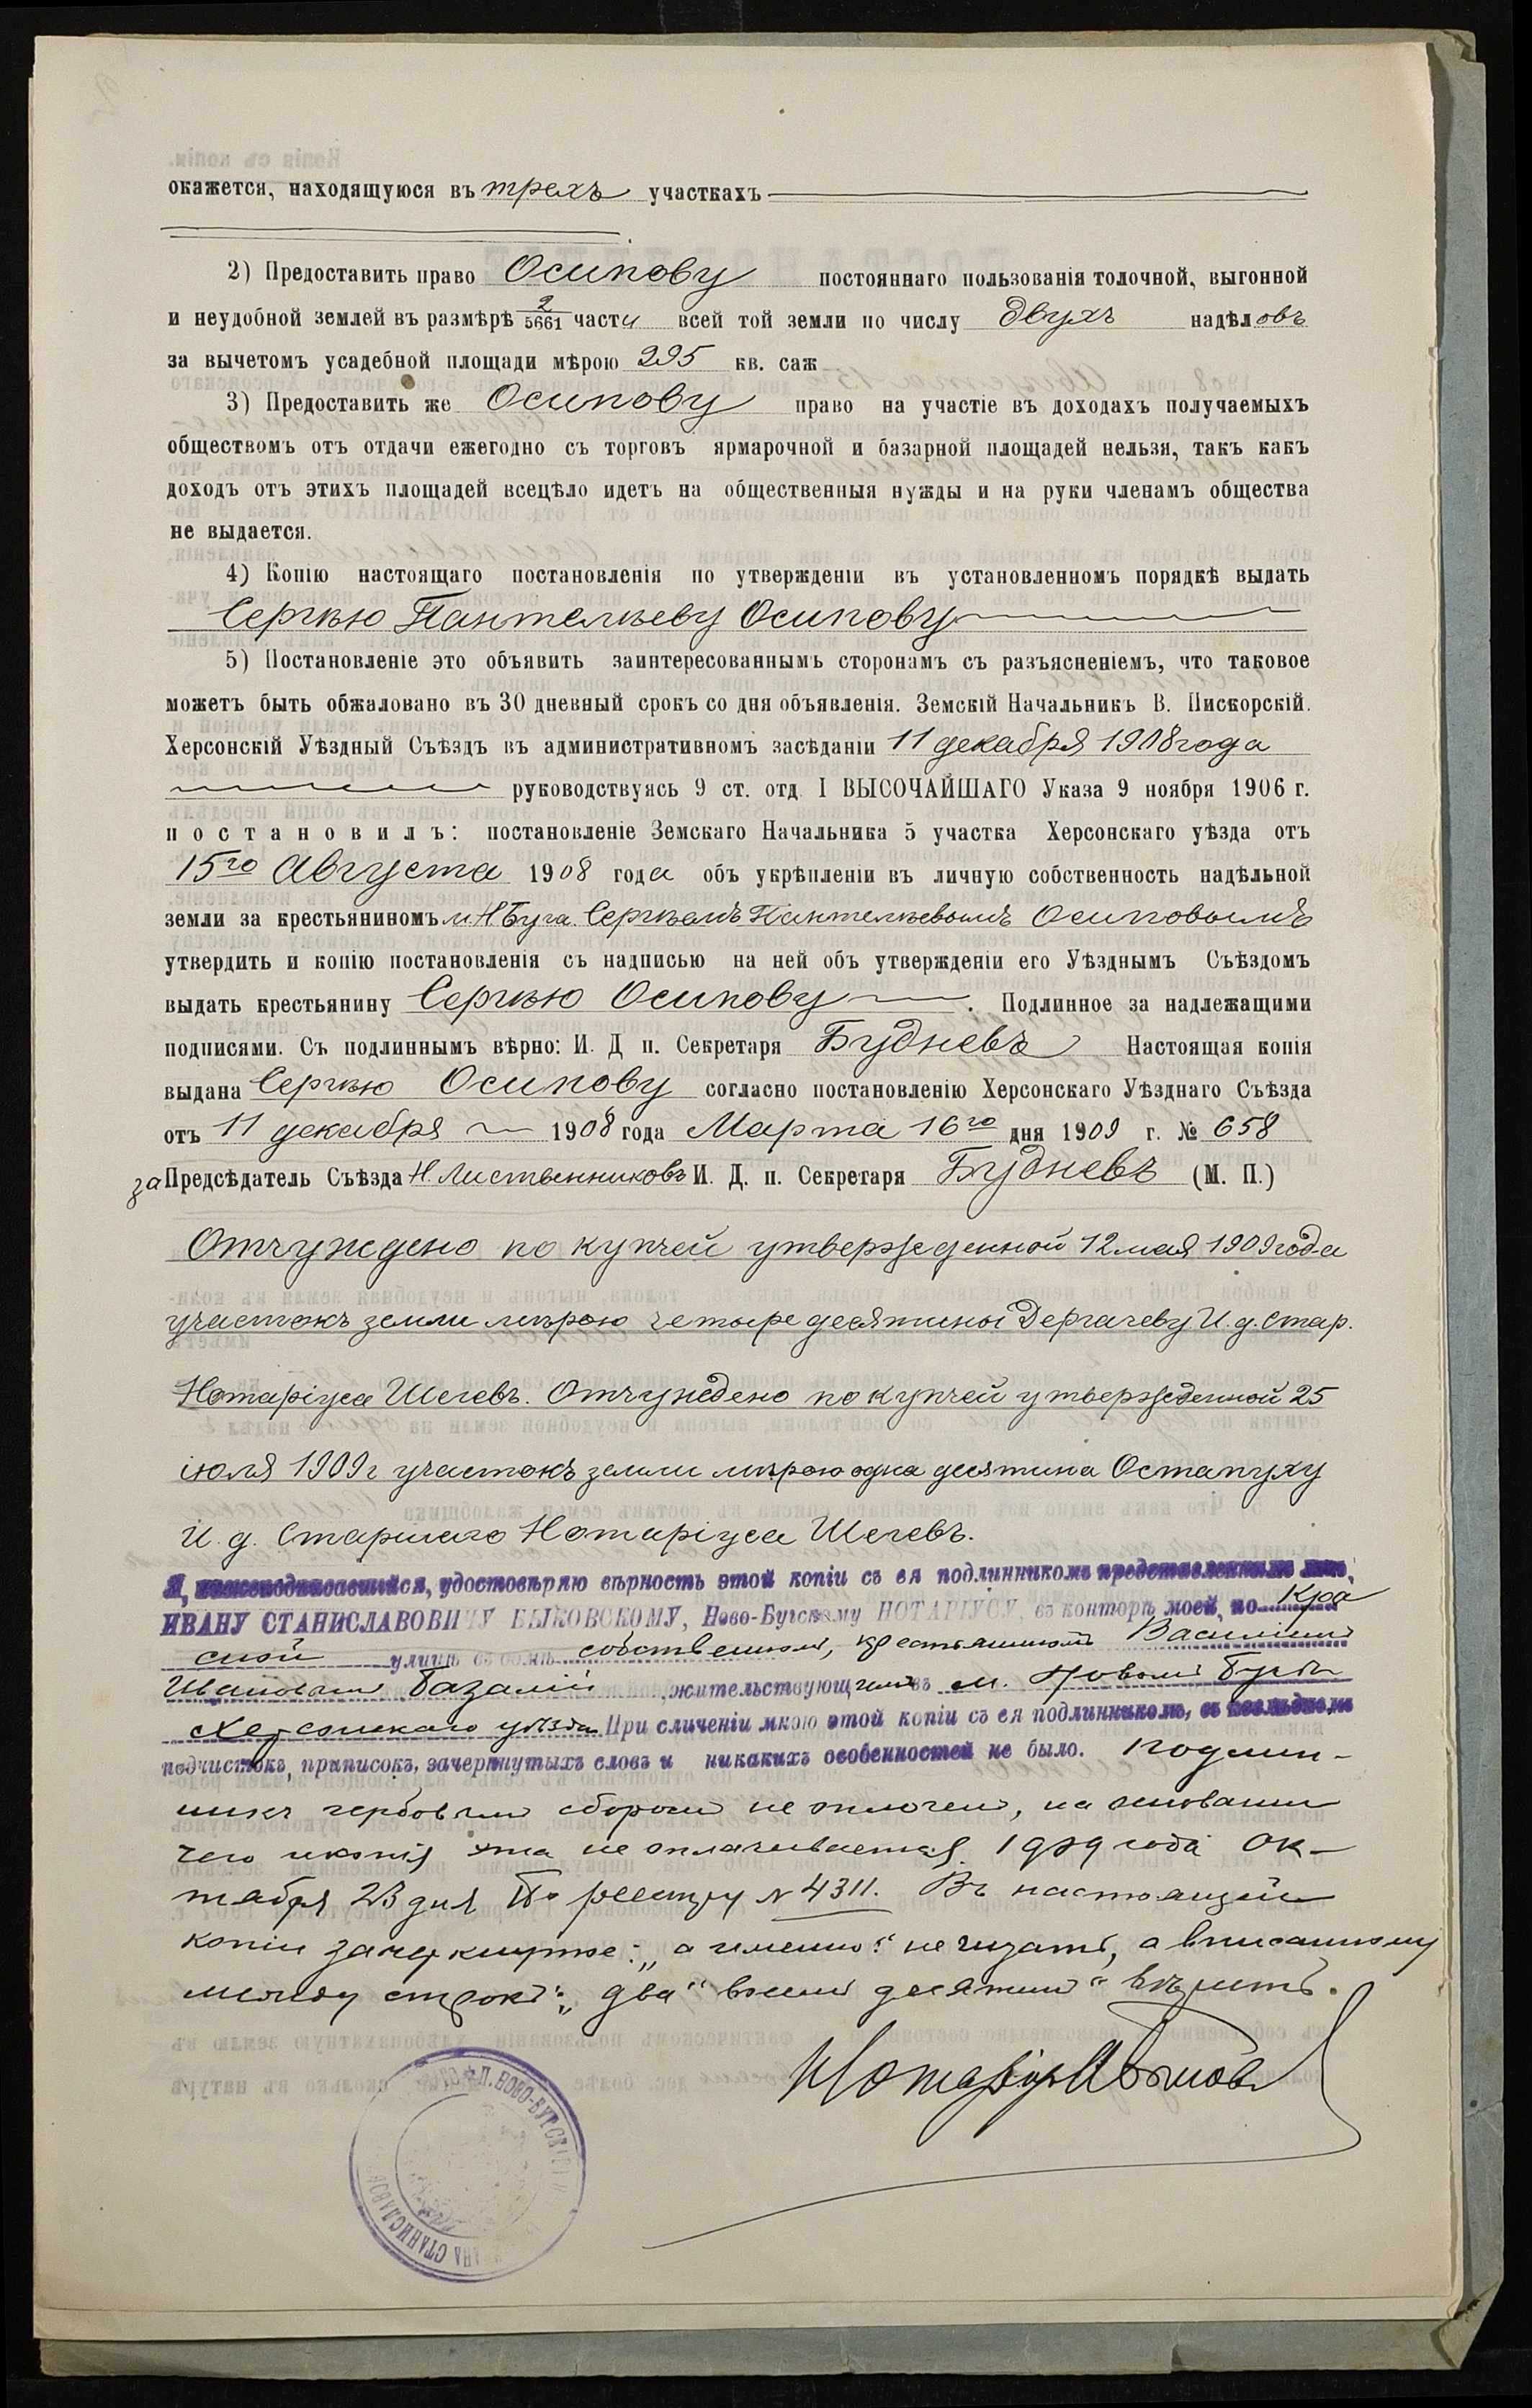 окажется, находящуюся въ трехъ участкахъ
2) Предоставить право Осипову постояннаго пользованія толочной, выгонной
и неудобной землей въ размѣрѣ 2/5661 части всей той земли по числу двухъ надѣловъ
за вычетомъ усадебной площади мѣрою 295 кв. саж
3) Предоставить же Осипову право на участіе въ доходахъ получаемыхъ
обществомъ отъ отдачи ежегодно съ торговъ ярмарочной и базарной площадей нельзя, такъ какъ
доходъ отъ этихъ площадей всецѣло идетъ на общественныя нужды и на руки членамъ общества
не выдается.
4) Копію настоящаго постановленія по утвержденіи въ установленномъ порядкѣ выдать
Сергѣю Пантелѣеву Осипову
5) Постановленіе это объявить заинтересованнымъ сторонамъ съ разъясненіемъ, что таковое
можетъ быть обжаловано въ 30 дневный срокъ со дня объявленія. Земскій Начальникъ В. Пискорскій.
Херсонскій Уѣздный Съѣздъ въ административномъ засѣданіи 11 декабря 1908 года
руководствуясь 9 ст. отд I ВЫСОЧАЙШАГО Указа 9 ноября 1906 г.
постановилъ: постановленіе Земскаго Начальника 5 участка Херсонскаго уѣзда отъ
15го Августа 1908 года объ укрѣпленіи въ личную собственность надѣльной
земли за крестьяниномъ м. Н Буга Сергѣемъ Пантелѣевымъ Осиповымъ
утвердить и копію постановленія съ надписью на ней объ утвержденіи его Уѣзднымъ Съѣздомъ
выдать крестьянину Сергѣю Осипову. Подлинное за надлежащими
подписями. Съ подлиннымъ вѣрно: И. Д п. Секретаря Будневъ Настоящая копія
выдана Сергѣю Осипову согласно постановленію Херсонскаго Уѣзднаго Съѣзда
отъ 11 декабря 1908 года Марта 16го дня 1909 г. № 658
за Предсѣдатель Съѣзда Н. Листвѣнниковъ И. Д. п. Секретаря Будневъ (М. П.)
Отчуждено по купчей утвержденной 12 мая 1909 года
участокъ земли мѣрою четыре десятины Дергачеву И. д. Стар.
Нотаріуса Шегевъ. Отчуждено по купчей утвержденной 25
іюля 1909 г участокъ земли мѣрою одна десятина Остапуху
И. д. Старшаго Нотаріуса Шегевъ.
Я, удостовѣряю вѣрность этой копіи съ ея подлинникомъ представленнымъ мнѣ,
ИВАНУ СТАНИСЛАВОВИЧУ БЫКОВСКОМУ, Ново-Бугскому НОТАРІУСУ, въ конторѣ моей, по Кра
сной улицѣ въ домѣ собственномъ, крестьяниномъ Василіемъ
Ивановымъ Базалій жительствующимъ въ м. Новомъ Бугѣ
Херсонскаго уѣзда При сличеніи мною этой копіи съ ея подлинникомъ, въ послѣднемъ
подчистокъ, приписокъ, зачеркнутыхъ словъ и никакихъ особенностей не было. Подлин-
никъ гербовымъ сборомъ не оплоченъ, на основаніи
чего и копія эта не оплачивается. 1909 года Ок-
тября 23 дня По реестру № 4311. Въ настоящей
копіи зачеркнутое: „а именно" не читать, а вписанному
между строкъ: „два" „восемь десятинъ" вѣрить.
Нотаріусъ